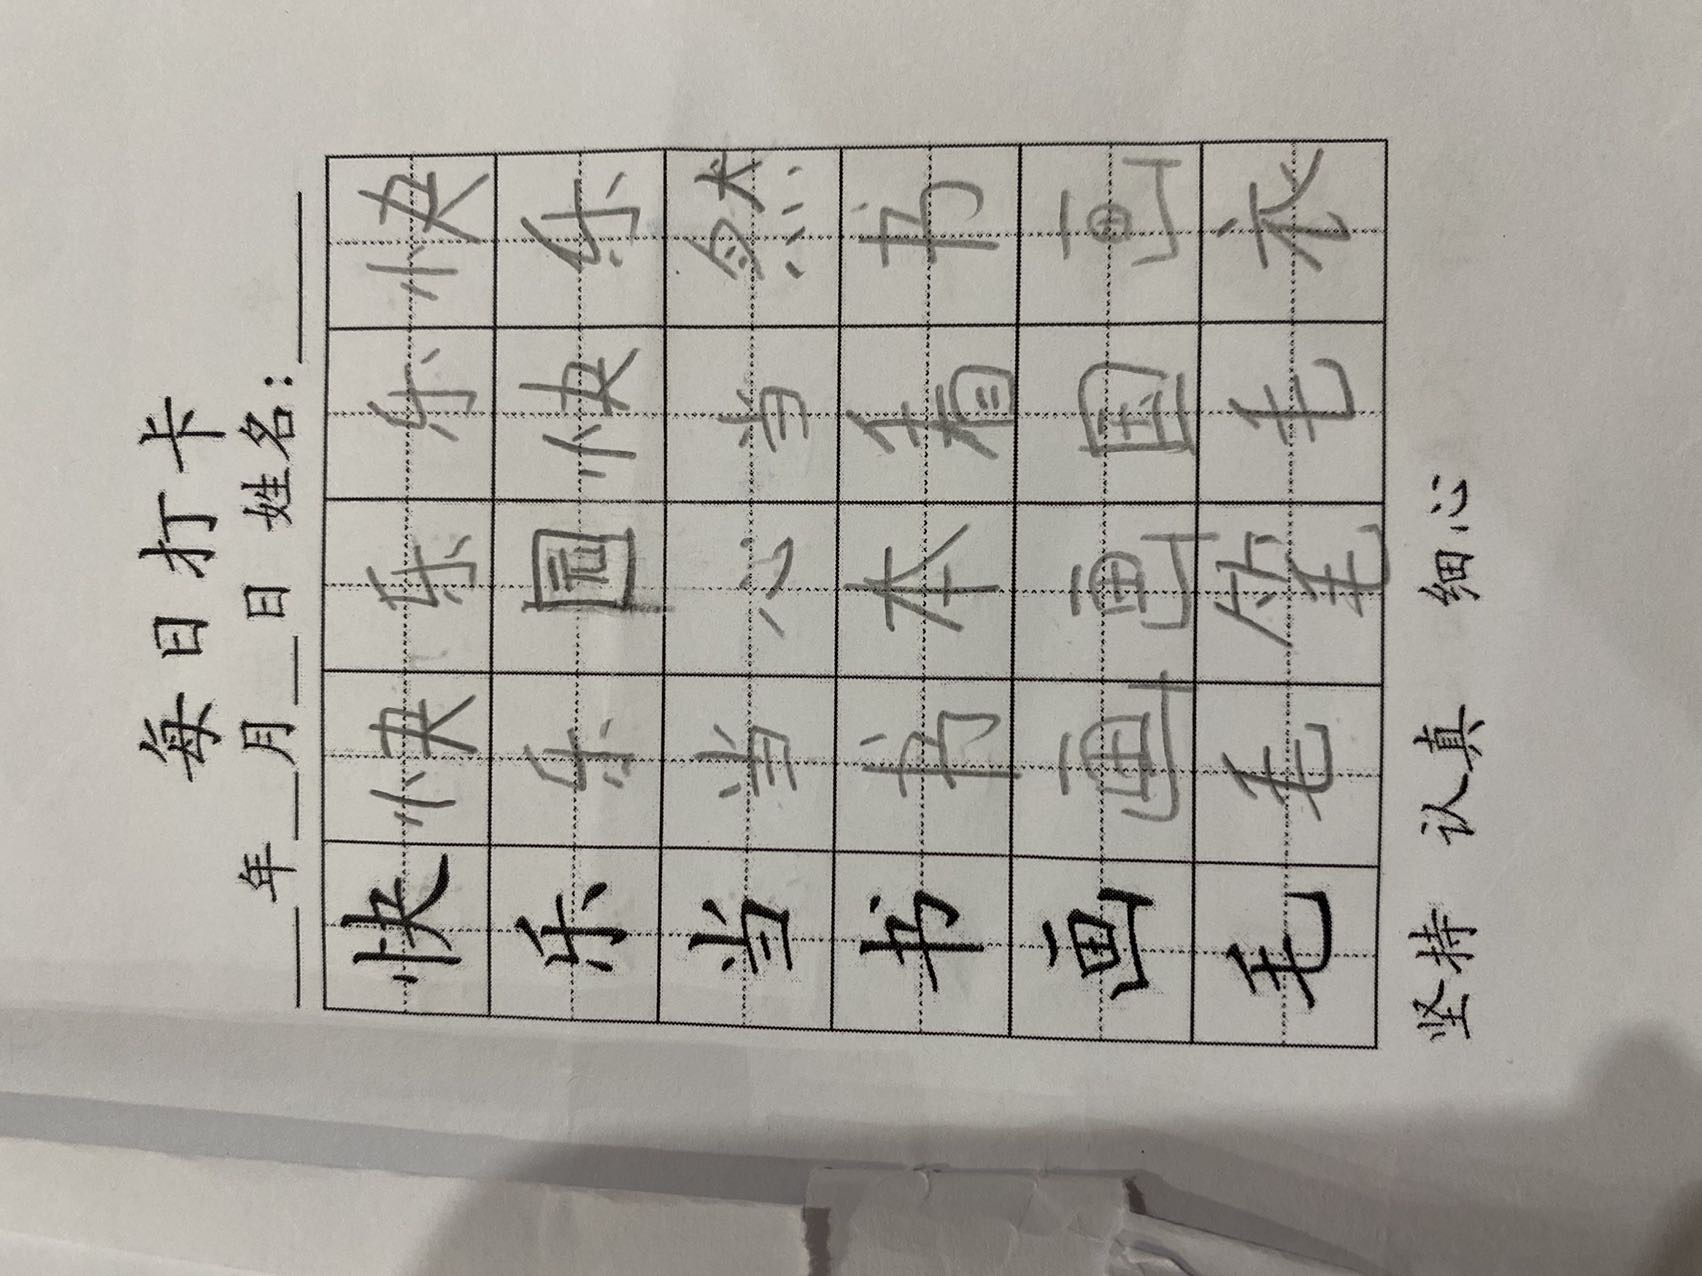 每日打卡
年 月 日 姓名：
快 快 乐 乐 快
乐 乐 园 快 乐
当 当 心 当 然
书 书 本 看 书
画 画 画 国 画
毛 毛 笔 毛 衣
坚持 认真 细心